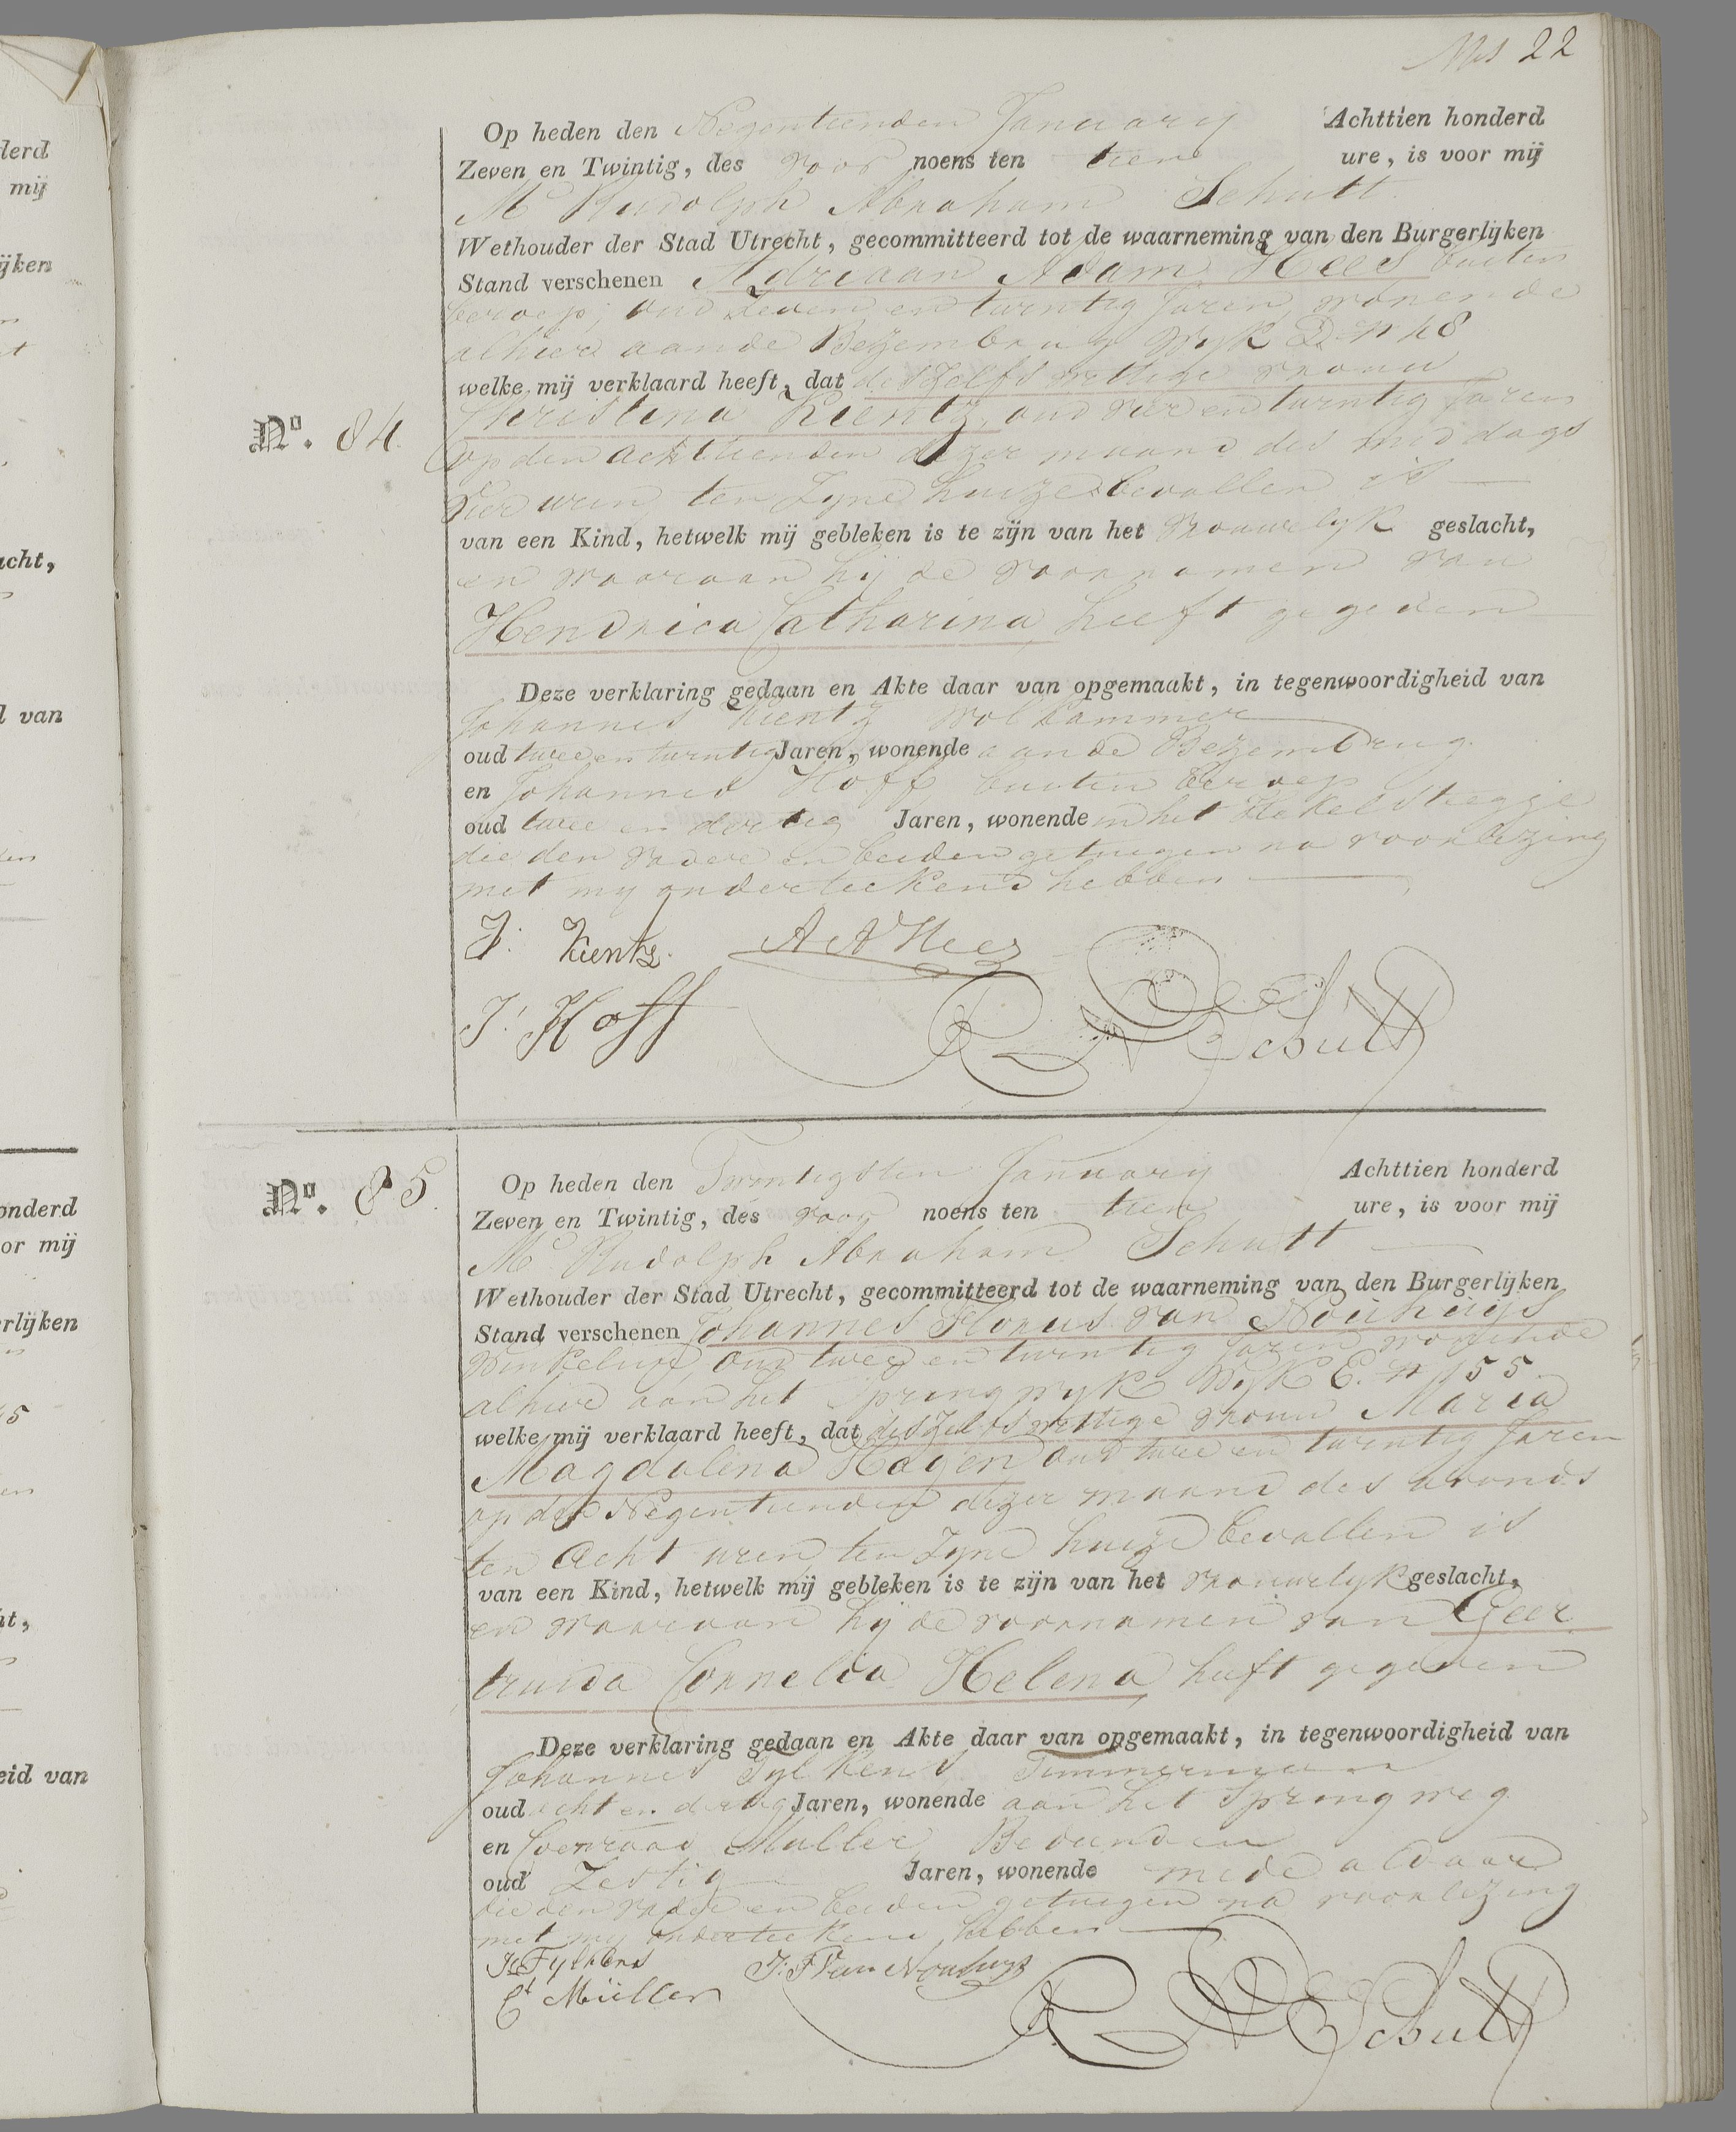 22
Op heden den Negentienden January Achttien honderd
Zeven en Twintig, des voor noens ten tien ure, is voor mij
Mr Rudolph Abraham Schutt
Wethouder der Stad Utrecht, gecommitteerd tot de waarneming van den Burgerlijken
Stand verschenen Adriaan Adam Hees buiten
beroep, oud zeven en twintig Jaren, wonende
alhier aande Bezembrug Wyk D. n 48
welke mij verklaard heeft, dat deszelfs wettige vrouw
No. 84.
Christina Kientz, oud vier en twintig Jaren
op den achttienden dezer maand des middags
vier uren, ten zyne huize bevallen is
van een Kind, hetwelk mij gebleken is te zijn van het vrouwelyk geslacht,
en waaraan hij de voornamen van
Hendrica Catharina heeft gegeven
Deze verklaring gedaan en Akte daar van opgemaakt, in tegenwoordigheid van
Johannes Kientz wolkammer
oud twee en twintig Jaren, wonende aande Bezembrug
en Johannes Hoff, buiten beroep
oud twee en dertig Jaren, wonende in het Hekelsteegje
die den vader en beiden getuigen na voorlezing
met my onderteekend hebben
J: Kientz. A A Hees
J: Hoff R A Schutt
No. 85.
Op heden den Twintigsten January Achttien honderd
Zeven en Twintig, des voor noens ten tien ure, is voor mij
Mr Rudolph Abraham Schutt
Wethouder der Stad Utrecht, gecommitteerd tot de waarneming van den Burgerlijken
Stand verschenen Johannes Florus van Nouhuijs
Winkelier, oud twee en twintig Jaren wonende
alhier aan het Springwyk Wyk E. n 155
welke mij verklaard heeft, dat deszelfs wettige vrouw Maria
Magdalena Hagen oud twee en twintig Jaren
op den Negentienden dezer maand des avonds
ten Acht uren, ten zyne huize bevallen is
van een Kind, hetwelk mij gebleken is te zijn van het vrouwelyk geslacht,
en waaraan hij de voornamen van Geer
truida Cornelia Helena heeft gegeven
Deze verklaring gedaan en Akte daar van opgemaakt, in tegenwoordigheid van
Johannes Fylkens Timmerman
oud acht en dertig Jaren, wonende aan het Springweg
en Coenraad Muller, Bediende
oud Zestig Jaren, wonende mede aldaar
die den vader en beiden getuigen na voorlezing
met my onderteekend hebben
Js Fylkens J: F Van Nouhuijs
Ct Müller R A Schutt